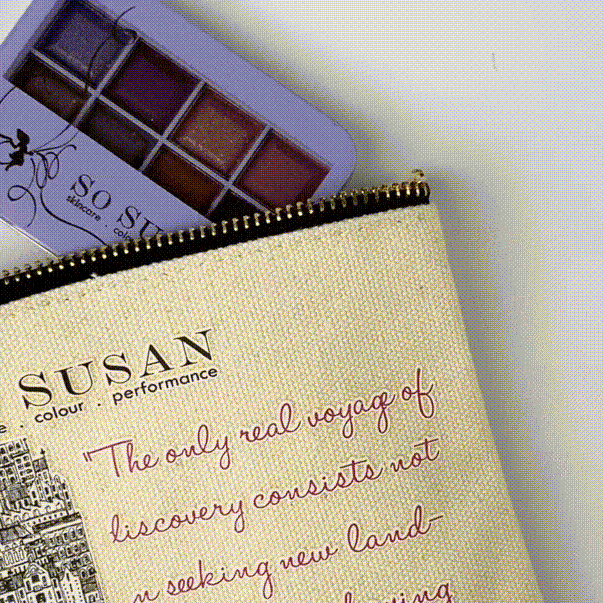 SO SU
skincare . col
SUSAN
e . colour . performance
"The only real voyage of
discovery consists not
n seeking new land-
ving